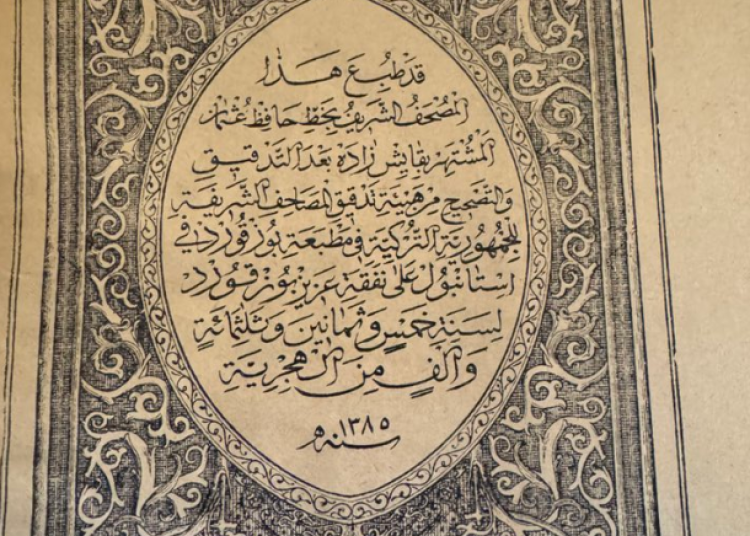 قد طبع هَذا
المصحف الشريف بخط حافظ عثمان
المشتهر بقايش زاده بعد التدقيق
والتصحيح من هيئة تدقيق المصاحف الشريفة
للجمهورية التركية في مطبعة بوز قورد في
استانبول على نفقة عزيز بوز قورد
لسنة خمس وثمانين وثلثمائة
وألف من الهجرية
سنه ١٣٨٥